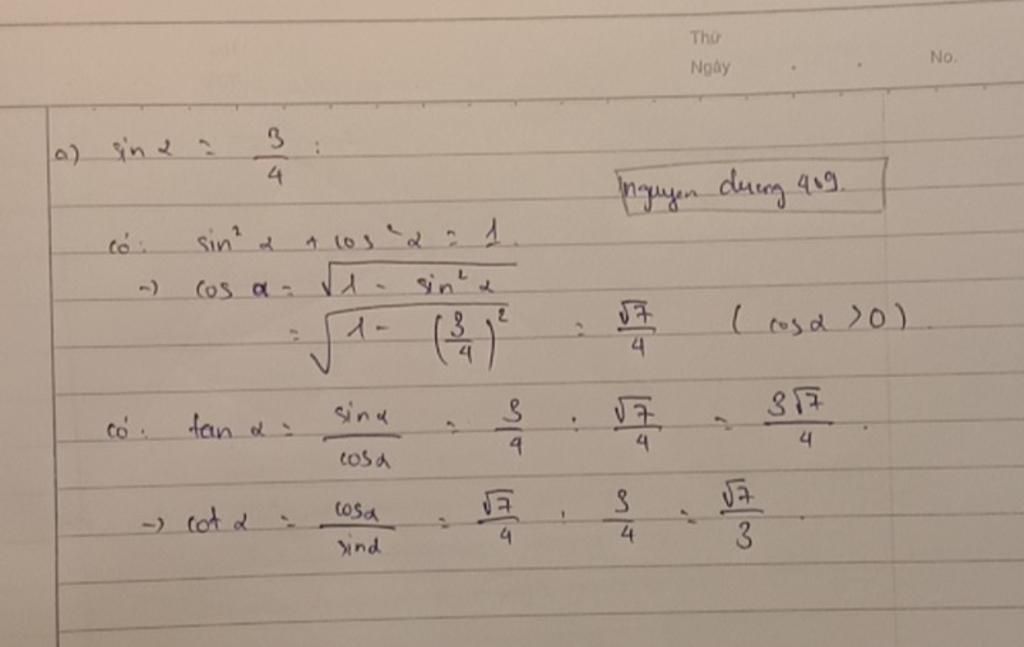 Thứ
Ngày . . No.
a) sin α = 3/4 :
nguyen duong 409.
có: sin² α + cos² α = 1.
→ cos α = √(1 - sin² α)
= √(1 - (3/4)²) = √7/4 ( cos α > 0 )
có: tan α = sin α/cos α = 3/4 : √7/4 = 3√7/4 .
→ cot α = cos α/sin α = √7/4 : 3/4 = √7/3 .